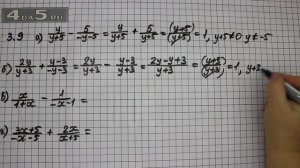 4DASS.RU
3.9 а) y/(y+5) - 5/(-y-5) = y/(y+5) + 5/(y+5) = (y+5)/(y+5) = 1, y+5≠0 y≠-5
б) 2y/(y+3) + (y-3)/(-y-3) = 2y/(y+3) - (y-3)/(y+3) = (2y-y+3)/(y+3) = (y+3)/(y+3) = 1, y+3
в) x/(1+x) - 1/(-x-1) =
г) (3x+5)/(-x-5) + 2x/(x+5) =